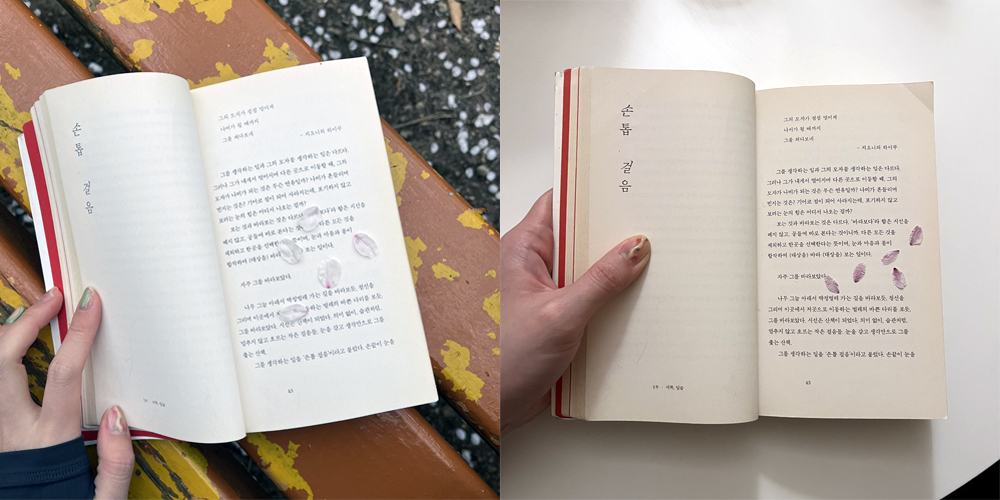 손톱
걸음
그의 모자가 점점 멀어져
나비가 될 때까지
그를 쳐다보네
– 치요니의 하이쿠
그를 생각하는 일과 그의 모자를 생각하는 일은 다르다.
그러나 그가 내게서 멀어지며 다른 곳으로 이동할 때, 그의
모자가 나비가 되는 것은 무슨 연유일까? 나비가 흔들리며
번지는 것은? 기어코 점이 되어 사라지는데, 포기하지 않고
보려는 눈의 힘은 어디서 나오는 걸까?
보는 것과 바라보는 것은 다르다. '바라보다'라 함은 시선을
떼지 않고, 공들여 바로 다른 모든 것을
제외하고 한곳을 선택한 뜻이며, 눈과 마음과 몸이
합작하여 (대상을) 바라 (대상을) 보는 일이다.
자주 그를 바라보았다.
나무 그늘 아래서 딱정벌레 가는 길을 바라보듯,
이곳에서 저곳으로 이동하는 벌레의 바쁜 다리를 보듯,
그를 바라보았다. 시선은 산책이 되었다. 의미 없이, 습관처럼,
멈추지 않고 흐르는 작은 걸음들. 눈을 감고 생각만으로 그를
좇는 산책.
그를 생각하는 일을 '손톱 걸음'이라고 불렀다. 손끝이 눈을
63
손톱
걸음
그의 모자가 점점 멀어져
나비가 될 때까지
그를 쳐다보네
– 치요니의 하이쿠
그를 생각하는 일과 그의 모자를 생각하는 일은 다르다.
그러나 그가 내게서 멀어지며 다른 곳으로 이동할 때, 그의
모자가 나비가 되는 것은 무슨 연유일까? 나비가 흔들리며
번지는 것은? 기어코 점이 되어 사라지는데, 포기하지 않고
보려는 눈의 힘은 어디서 나오는 걸까?
보는 것과 바라보는 것은 다르다. '바라보다'라 함은 시선을
떼지 않고, 공들여 바로 본다는 것이니까. 다른 모든 것을
제외하고 한곳을 선택한다는 뜻이며, 눈과 마음과 몸이
합작하여 (대상을) 바라 (대상을) 보는 일이다.
자주 그를 바라보았다.
나무 그늘 아래서 딱정벌레 가는 길을 바라보듯,
이곳에서 저곳으로 이동하는 벌레의 바쁜 다리를 보듯,
그를 바라보았다. 시선은 산책이 되었다. 의미 없이, 습관처럼,
멈추지 않고 흐르는 작은 걸음들. 눈을 감고 생각만으로 그를
좇는 산책.
그를 생각하는 일을 '손톱 걸음'이라고 불렀다. 손끝이 눈을
63